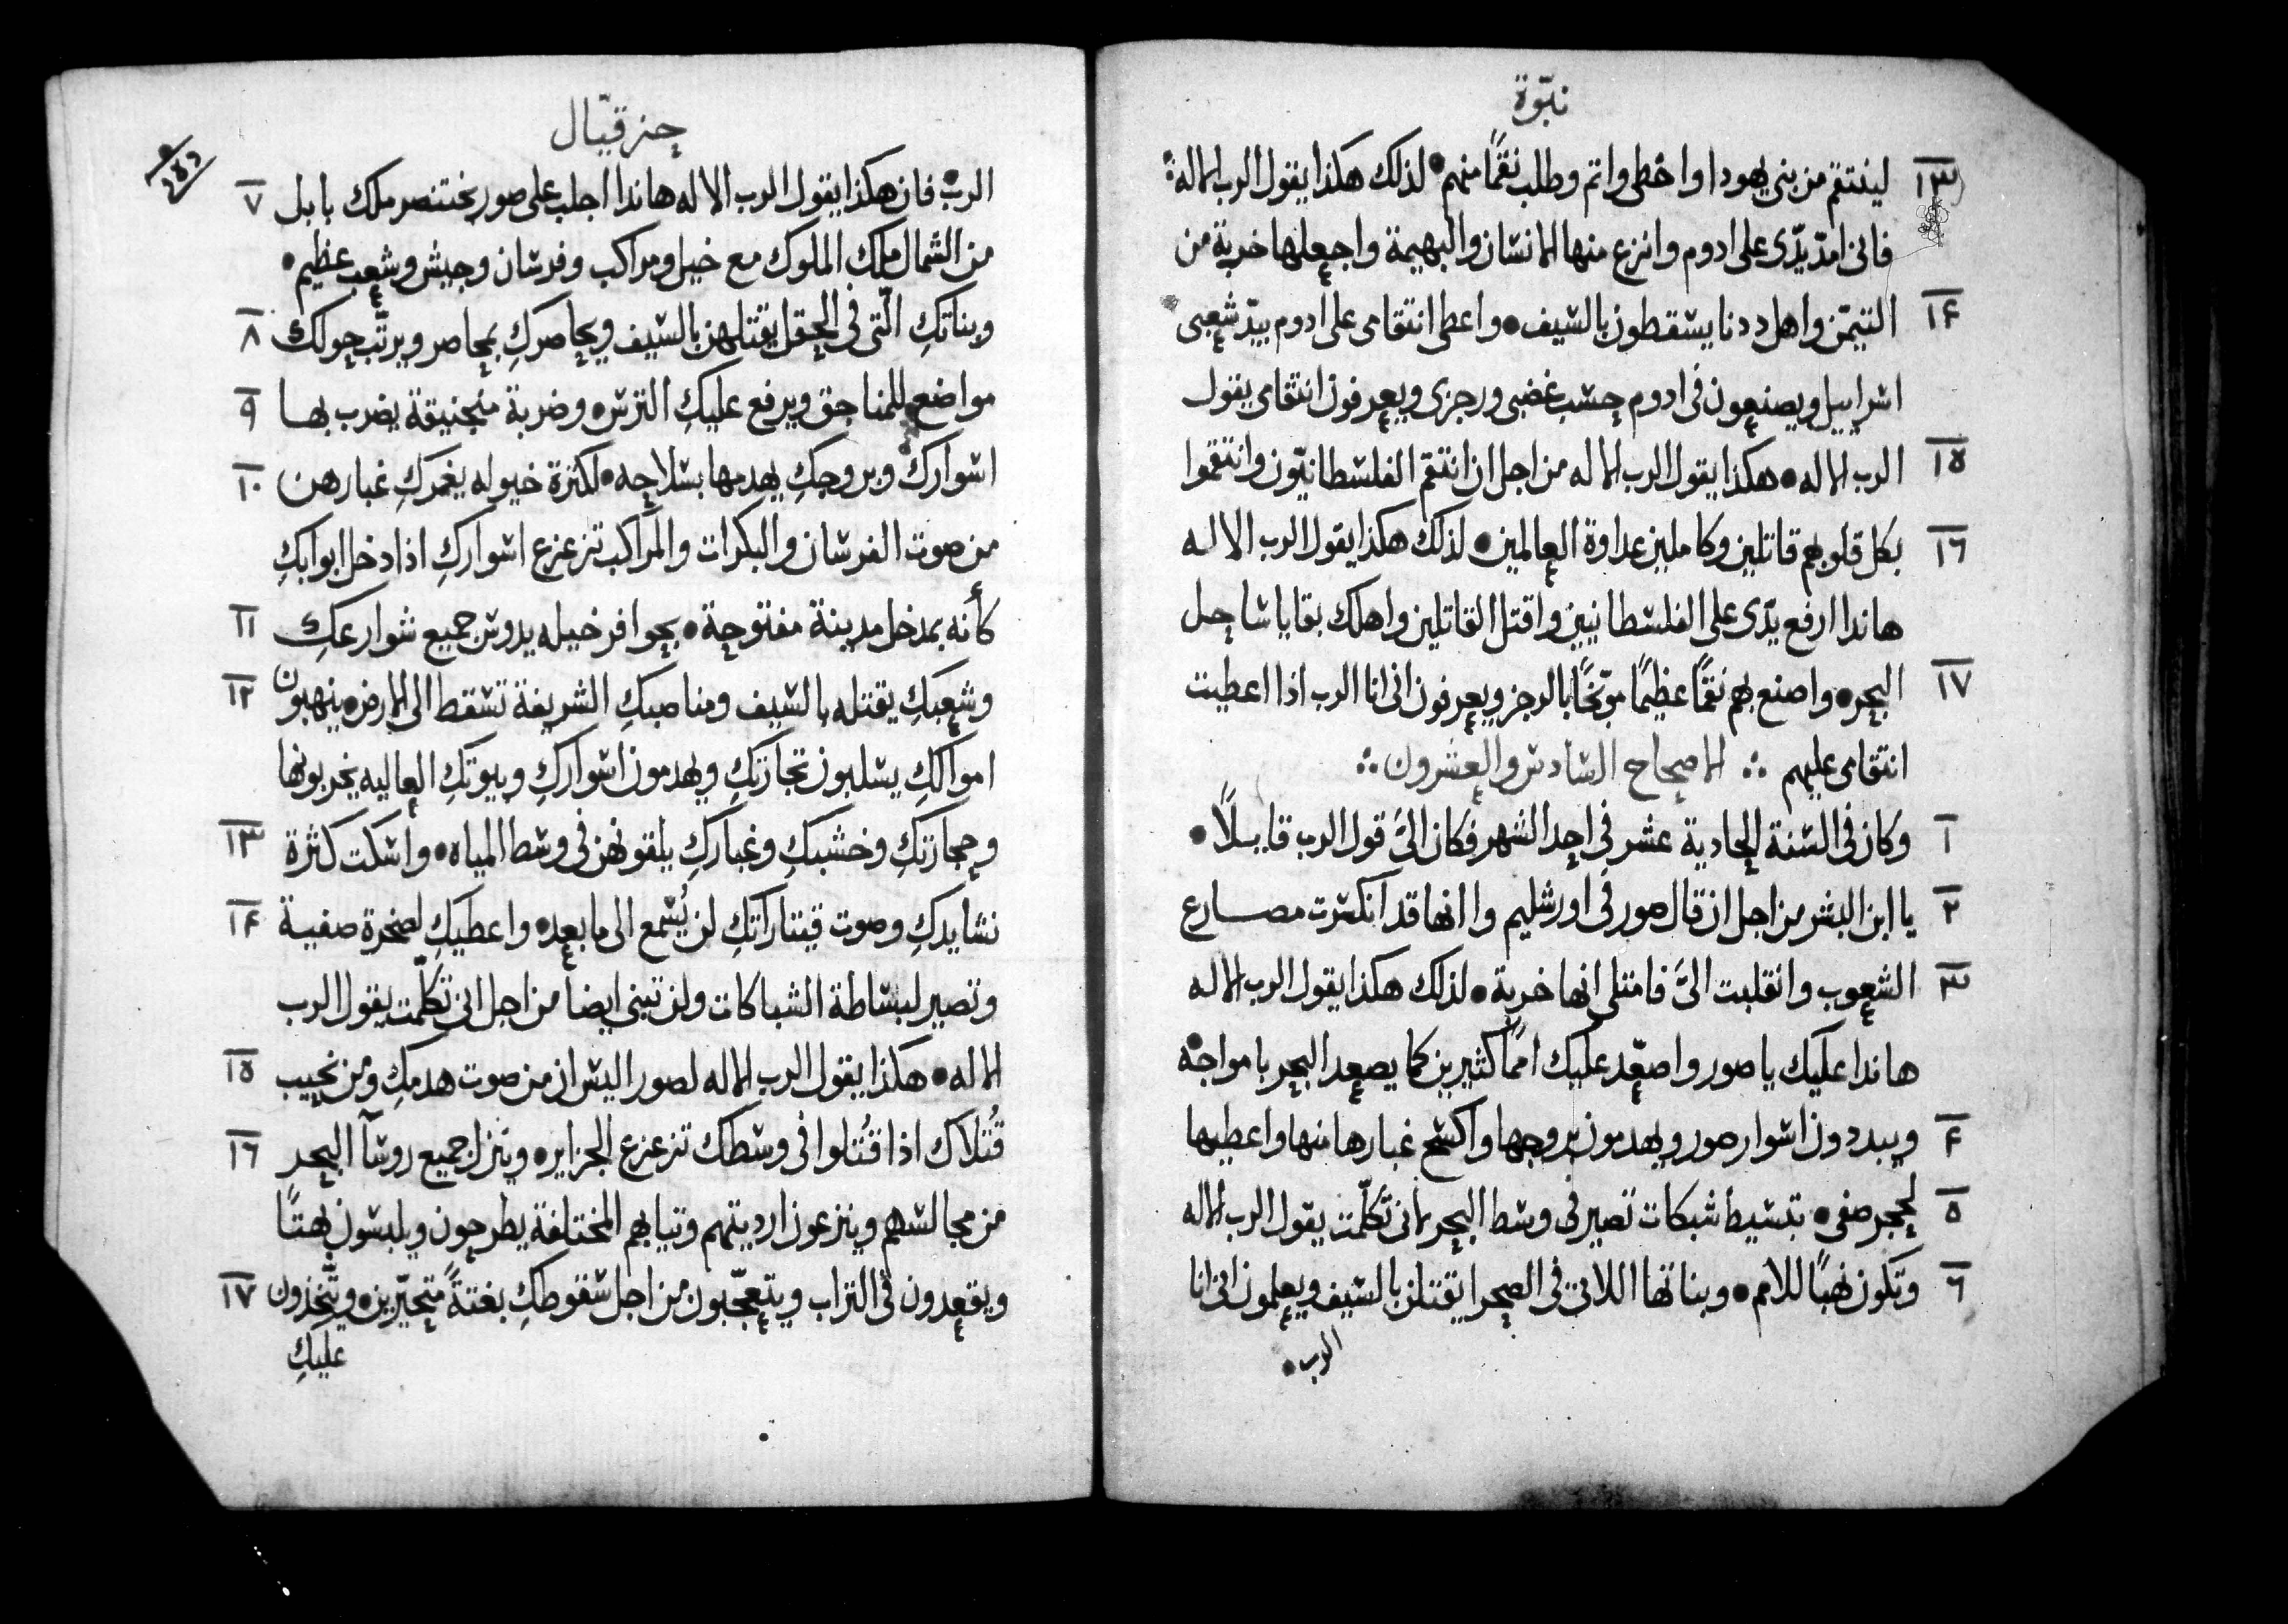 نبّوة
١٣ لينتقم من بنى يهودا واخطى واثم وطلب نقمًا منهم • لذلك هكذا يقول الرب الاله
فانى امدّ يدّى على ادوم وانزع منها الانسان والبهيمة واجعلها خربة من
١۴ التيمّن واهل ددنا يسقطون بالسيف • واعطى انتقامى على ادوم بيدّ شعبى
اسراييل ويصنعون فى ادوم حسب غضبى ورجزى ويعرفون انتقامى يقول
١٥ الرب الاله • هكذا يقول الرب الاله من اجل ان انتقم الفلسطانيّون وانتقموا
١٦ بكل قلوبهم قاتلين وكاملين عداوة العالمين • لذلك هكذا يقول الرب الاله
هاندا ارفع يدّى على الفلسطانيين واقتل القاتلين واهلك بقايا ساحل
١٧ البحر • واصنع بهم نقمًا عظيمًا موّبخًا بالرجز ويعرفون انى انا الرب اذا اعطيت
انتقامى عليهم ∴ الاصحاح السادس والعشرون ∴
١ وكان فى السنة الحادية عشر فى احد الشهر فكان الىَّ قول الرب قايلًا •
٢ يا ابن البشر من اجل ان قال صور فى اورشليم وا انها قد انكسرت مصارع
٣ الشعوب وانقلبت الىَّ فامتلى انها خربة • لذلك هكذا يقول الرب الاله
هاندا عليك يا صور واصعّد عليك اممًا كثيرين كما يصعد البحر بامواجه
۴ ويبددون اسوار صور ويهدمون بروجها واكسح غبارها منها واعطيها
٥ لحجر صفى • تبسيط شبكات تصير فى وسط البحر لانى تكلّمت يقول الرب الاله
٦ وتكون نهبًا للامم • وبناتها اللاتى فى الصحرا يقتلن بالسيف ويعلمون انى انا
الرب •
حزقيّال
٧ الرب فان هكذا يقول الرب الاله هاندا اجلب على صور بختنصر ملك بابل
من الشمال ملك الملوك مع خيل ومراكب وفرسان وجيش وشعب عظيم •
٨ وبناتكِ الّتى فى الحقل يقتلهن بالسيف ويحاصركِ بمحاصر ويرتّب حولك
٩ مواضع للمناجق ويرفع عليكِ الترس • وضربة منجنيقة يضرب بها
١٠ اسوارك وبروجكِ يهدمها بسلاحه • لكثرة خيوله يغمركِ غبارهن
من صوت الفرسان والبكرات والمراكب تزعزع اسواركِ اذا دخل ابوابكِ
١١ كأنه بمدخل مدينة مفتوحة • بحوافر خيله يدوس جميع شوارعكِ
١٢ وشعبكِ يقتله بالسيف ومناصبكِ الشريفة تسقط الى الارض • ينهبون
اموالكِ يسلبون تجارتكِ ويهدمون اسواركِ وبيوتكِ العاليه يخربونها
١٣ وحجارتكِ وخشبكِ وغباركِ يلقونهن فى وسط المياه • واسكت كثرة
١۴ نشايدكِ وصوت قيتاراتكِ لن يُسمع الى ما بعد • واعطيكِ لصخرة صفية
وتصير لبساطة الشباكات ولن تبنى ايضاً من اجل انى تكلّمت يقول الرب
١٥ الاله • هكذا يقول الرب الاله لصور اليس ان من صوت هدمكِ ومن نحيب
١٦ قُتلاك اذا قُتلوا فى وسطك تزعزع الجزاير • وينزل جميع روسآ البحر
من مجالسهم وينزعون ارديتهم وثيابهم المختلفة يطرحون ويلبسون بهتًا
١٧ ويقعدون فى التراب ويتعجّبون من اجل سقوطكِ بغتةً متحيّرين • ويتّخذون
عليكِ